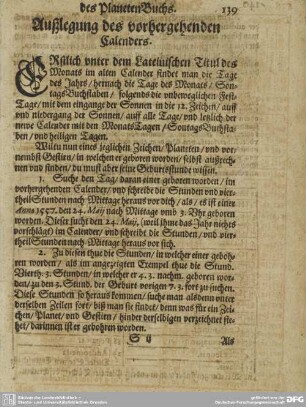 des PlanetenBuchs. 139
Außlegung des vorhergehenden
Calenders.
ERstlich vnter dem Lateinischen Titul des
Monats im alten Calender findet man die Tage
des Jahrs / hernach die Tage des Monats / Son-
tagsBuchstaben / folgends die vnbeweglichen Fest-
Tage / mit dem eingange der Sonnen in die 12. Zeichen / auff
vnd niedergang der Sonnen / auff alle Tage / vnd letzlich der
newe Calender mit den MonatsTagen / SontagsBuchsta-
ben / vnd heiligen Tagen.
Wiltu nun eines jeglichen Zeichen / Planeten / vnd vor-
nembst Gestirn / in welchen er geboren worden / selbst außrech-
nen vnd finden / du must aber seine Geburtsstunde wissen.
1. Suche den Tag / daran einer geboren worden / im
vorhergehenden Calender / vnd schreibe die Stunden vnd vier-
theilStunden nach Mittage heraus vor dich / als / es ist einer
Anno 1597. den 24. Maij nach Mittage vmb 3. Vhr geboren
worden. Dieser sucht den 24. Maij, (weil ihme das Jahr nichts
vorschlägt) im Calender / vnd schreibt die Stunden / vnd vier-
theilStunden nach Mittage heraus vor sich.
2. Zu diesen thue die Stunden / in welcher einer geboh-
ren worden / als im angezeigten Exempel thue die Stund.
Vierth. 3. Stunden / in welcher er 4. 3. nachm. geboren wor-
den / zu den 3. Stund. der Geburt vorigen 7. 3. fort zu suchen.
Diese Stunden so heraus kommen / suche man alsdenn vnter
derselben Zellen fort / biß man sie findet / denn was für ein Zei-
chen / Planet / vnd Gestirn / hinder derselbigen verzeichnet ste-
het / darinnen ist er gebohren worden.
S ij Als